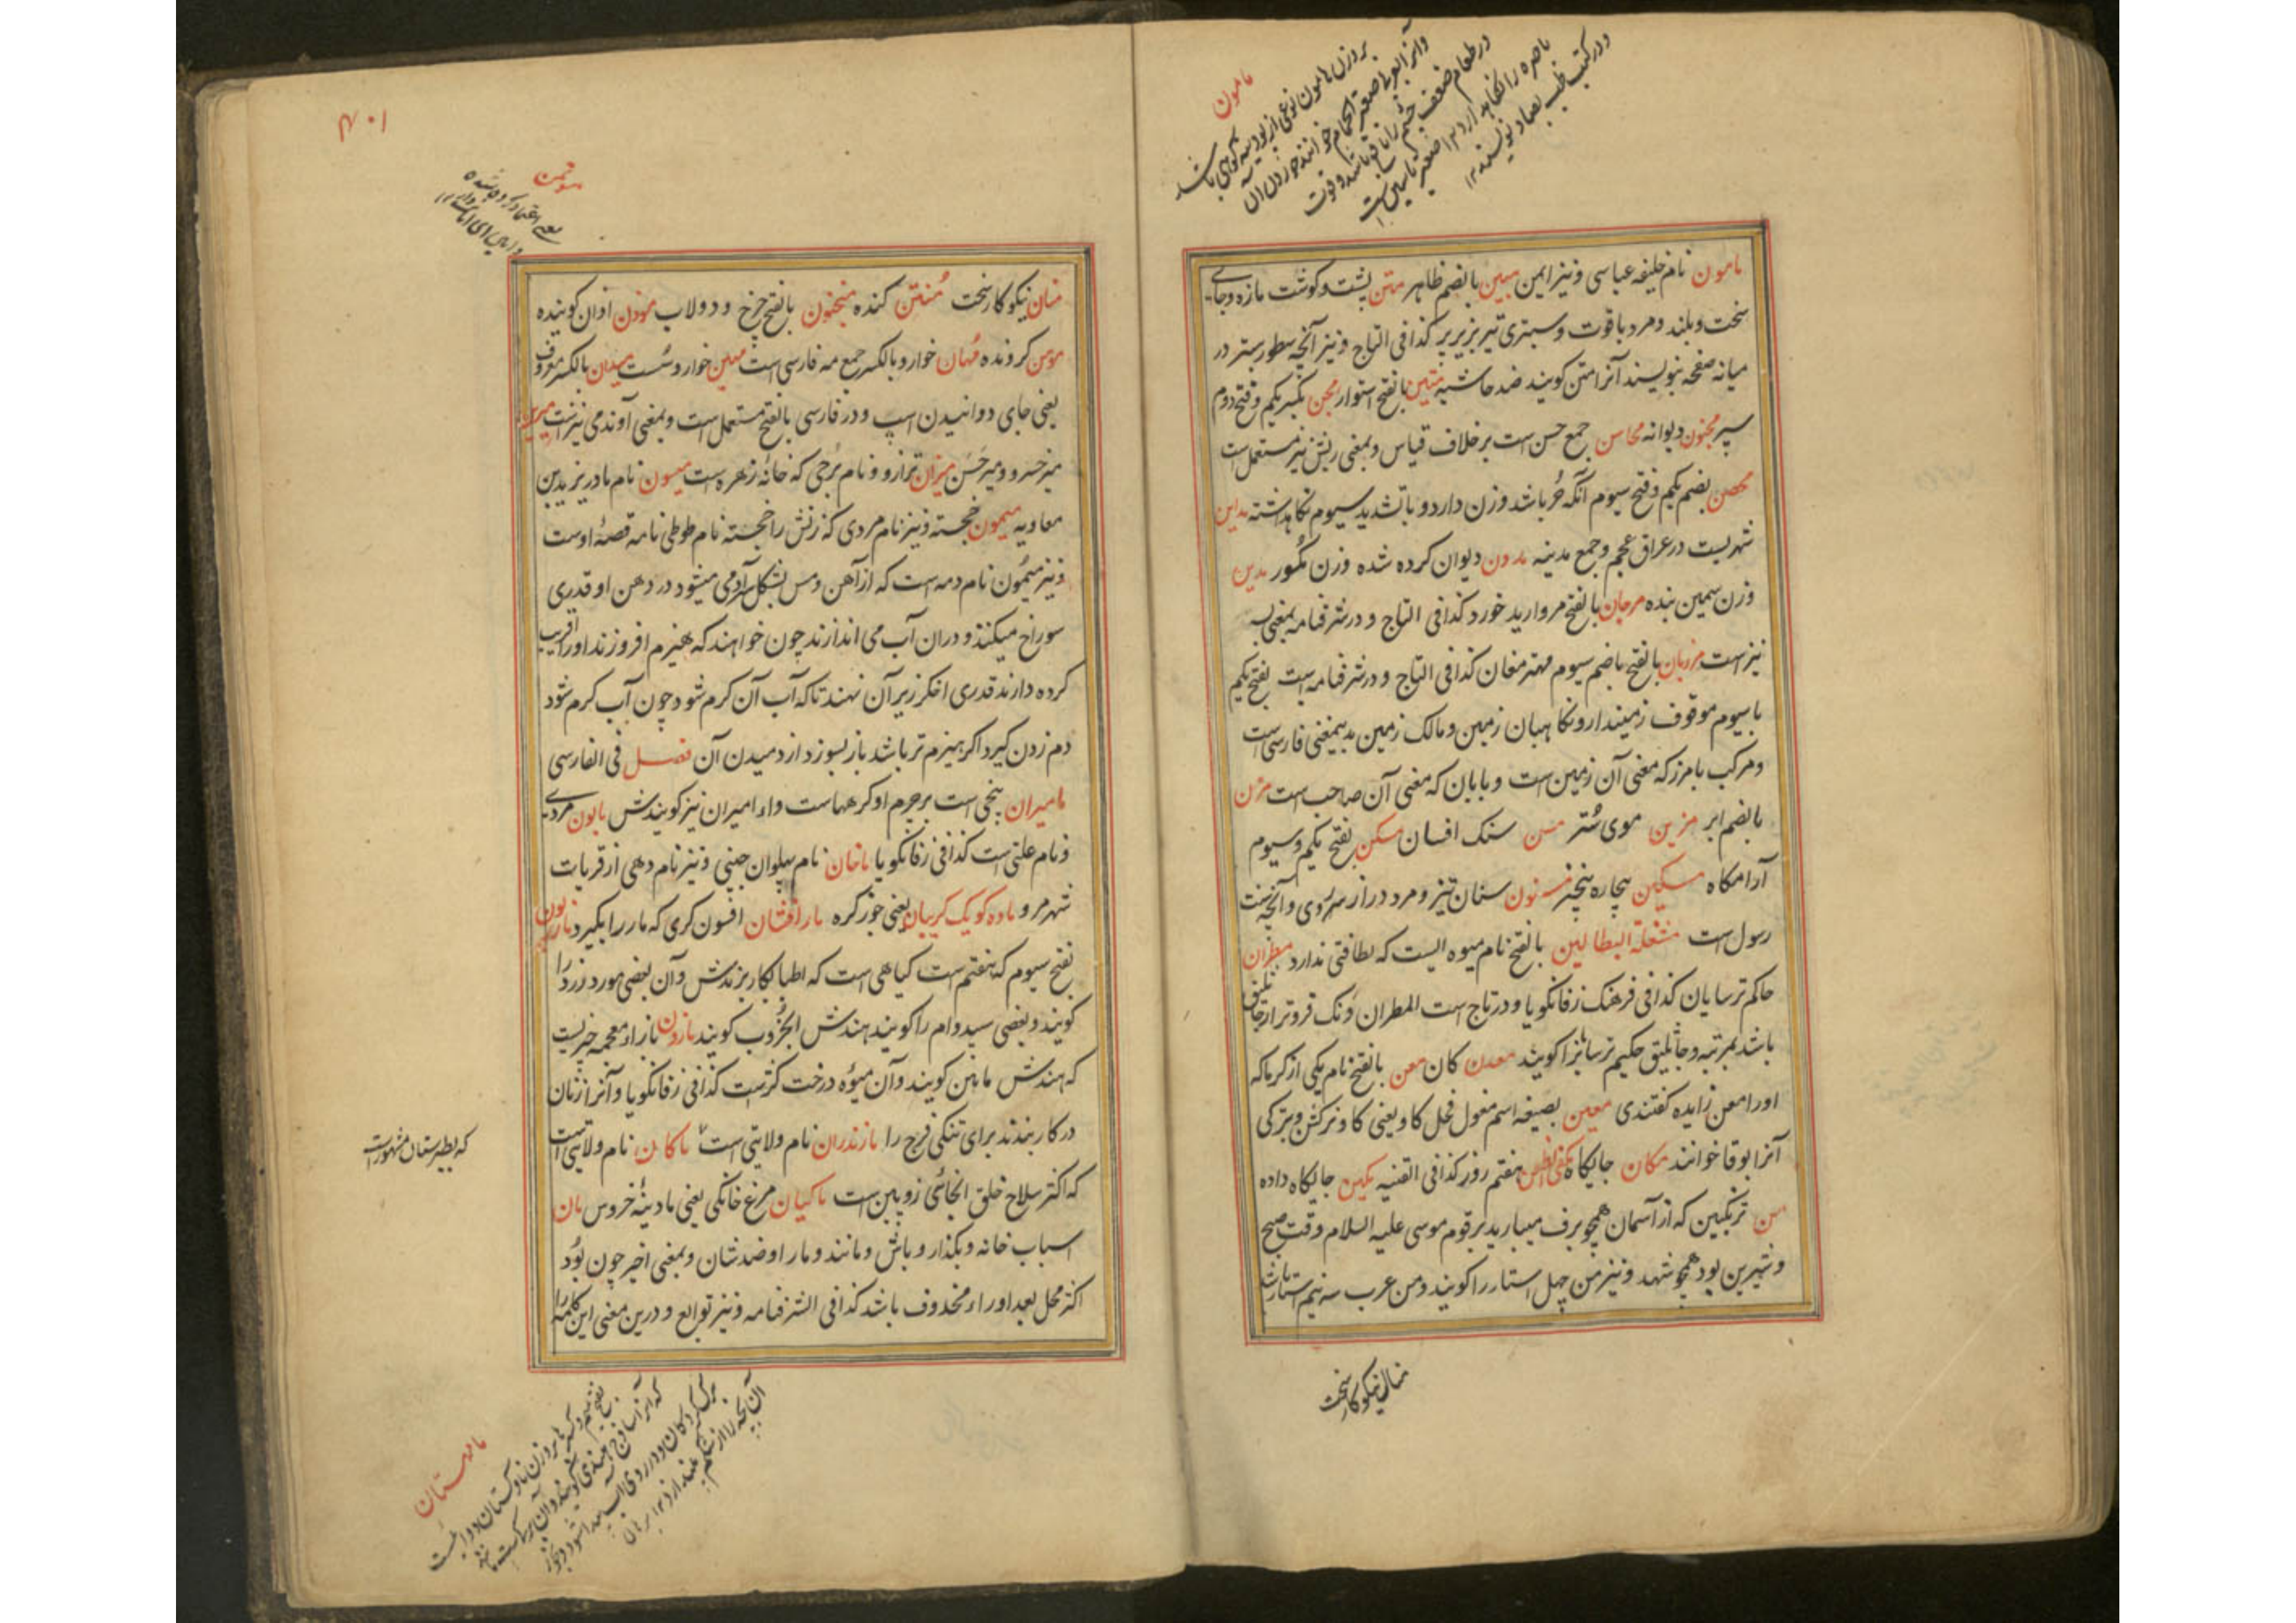 مامون
بر وزن هامون نوعی از پودینه کوهی باشد
در کتب طب بصاد نویسند ۱۲
مامون نام خلیفه عباسی و نیز ایمن مبین بالضم ظاهر متن پشت و کوشت مازه و جای
سخت و بلند و مرد با قوت و سبتری تیر بزیر پر کذا فی التاج و نیز آنچه سطور ستبر در
میانه صفحه بنویسند آنرا متن کویند ضد حاشیه متین بالفتح استوار مجن بکسر یکم و فتح دوم
سپر مجنون دیوانه محاسن جمع حسن است بر خلاف قیاس و بمعنی ریش نیز مستعمل است
محصن بضم یکم و فتح سیوم آنکه حُر باشد و زن دارد و با تشدید سیوم نکاهداشته مداین
شهریست در عراق عجم و جمع مدینه مدون دیوان کرده شده وزن مکسور مدین
وزن سمین بنده مرجان بالفتح مروارید خورد کذا فی التاج و در شرفنامه بمعنی بسد
نیز است مرزبان بالفتح با ضم سیوم مهتر مغان کذا فی التاج و در شرفنامه است بفتح یکم
با سیوم موقوف زمیندار و نکاهبان زمین و مالک زمین بدینمعنی فارسی است
و مرکب با مرز که معنی آن زمین است و بابان که معنی آن صاحب است مزن
بالضم ابر مزین موی ستر مسن سنک افسان مسکن بفتح یکم و سیوم
آرامکاه مسکین بیچاره بیچیز مسنون سنان تیز و مرد دراز سرروی و آنچه سنت
رسول است مشغلة البطالین بالفتح نام میوه ایست که لطافتی ندارد مطران
حاکم ترسایان کذا فی فرهنک زفانکویا و در تاج است المطران دونک فروتر از جاثلیق
باشد بمرتبه و جاثلیق حکیم ترسا نرا کویند معدن کان معن بالفتح نام یکی از کرما که
اورا معن زایده کفتندی معین بصیغه اسم مفعول فحل کاو یعنی کاو نر کشن و بترکی
آنرا بوقا خوانند مکان جایکاه هفتم روز کذا فی القنیه مکین جایکاه داده
من ترنکبین که از آسمان همچو برف میبارید بر قوم موسی علیه السلام وقت صبح
و شیرین بود همچو شهد و نیز من چهل استار را کویند و من عرب سه نیم استار باشد
منان نیکوکار سخت
۱۰۷۱
موتمن
یعنی اعتماد کرده شده
منان نیکوکار سخت مُنتن کنده منجنون بالفتح چرخ و دولاب موذن اذان کوینده
مومن کرونده مُهان خوار و بالکسر جمع مه فارسی است مهین خوار و سست میدان بالکسر معروف
یعنی جای دوانیدن اسپ و در فارسی بالفتح مستعمل است و بمعنی آوند می نیز است میرین
میر خسرو و میر حسن میزان ترازو و نام بُرجی که خانهٔ زهره است میسون نام مادر یزید بن
معاویه میمون خجسته و نیز نام مردی که زنش را خجسته نام طوطی نامه قصهٔ اوست
و نیز میمون نام دمه است که از آهن و مس بشکل سر آدمی میشود در دهن او قدری
سوراخ میکنند و در آن آب می اندازند چون خواهند که هیزم افروزند اورا قریب
کرده دارند قدری اخکر زیر آن نهند تا که آب آن کرم شود چون آب کرم شود
دم زدن کیرد اکر هیزم تر باشد باز بسوزد از دمیدن آن فصل فی الفارسی
مامیران بیخی است بر جرم او کرهها است و اء امیران نیز کویندش مابون مردی
و نام علتی است کذا فی زفانکویا ماخان نام پهلوان چینی و نیز نام دهی از قریات
شهر مرو ماده کویک کریبان یعنی جوز کره مارافشان افسون کری که مار را بکیرد مازریون
بفتح سیوم که هفتم است کیاهی است که اطبا بکار برندش و آن بعضی مورد زرد را
کویند و بعضی سیدوام را کویند هندش الخُروب کویند مازون بازاء معجمه چیزیست
که هندش ماهن کویند و آن میوهٔ درخت کز است کذا فی زفانکویا و آنرا زنان
در کار بندند برای تنکی فرج را مازندران نام ولایتی است ماکان نام ولایتی است
که اکثر سلاح خلق انجائی زوپین است ماکیان مرغ خانکی یعنی مادینهٔ خروس مان
اسباب خانه و بکذار و باش و مانند و مارا و ضد شان و بمعنی اخیر چون بُوَد
اکثر محل بعد او راء محذوف باشد کذا فی الشرفنامه و نیز توابع و درین معنی این کلمه را
که بطبرستان مشهور است
ماهستان